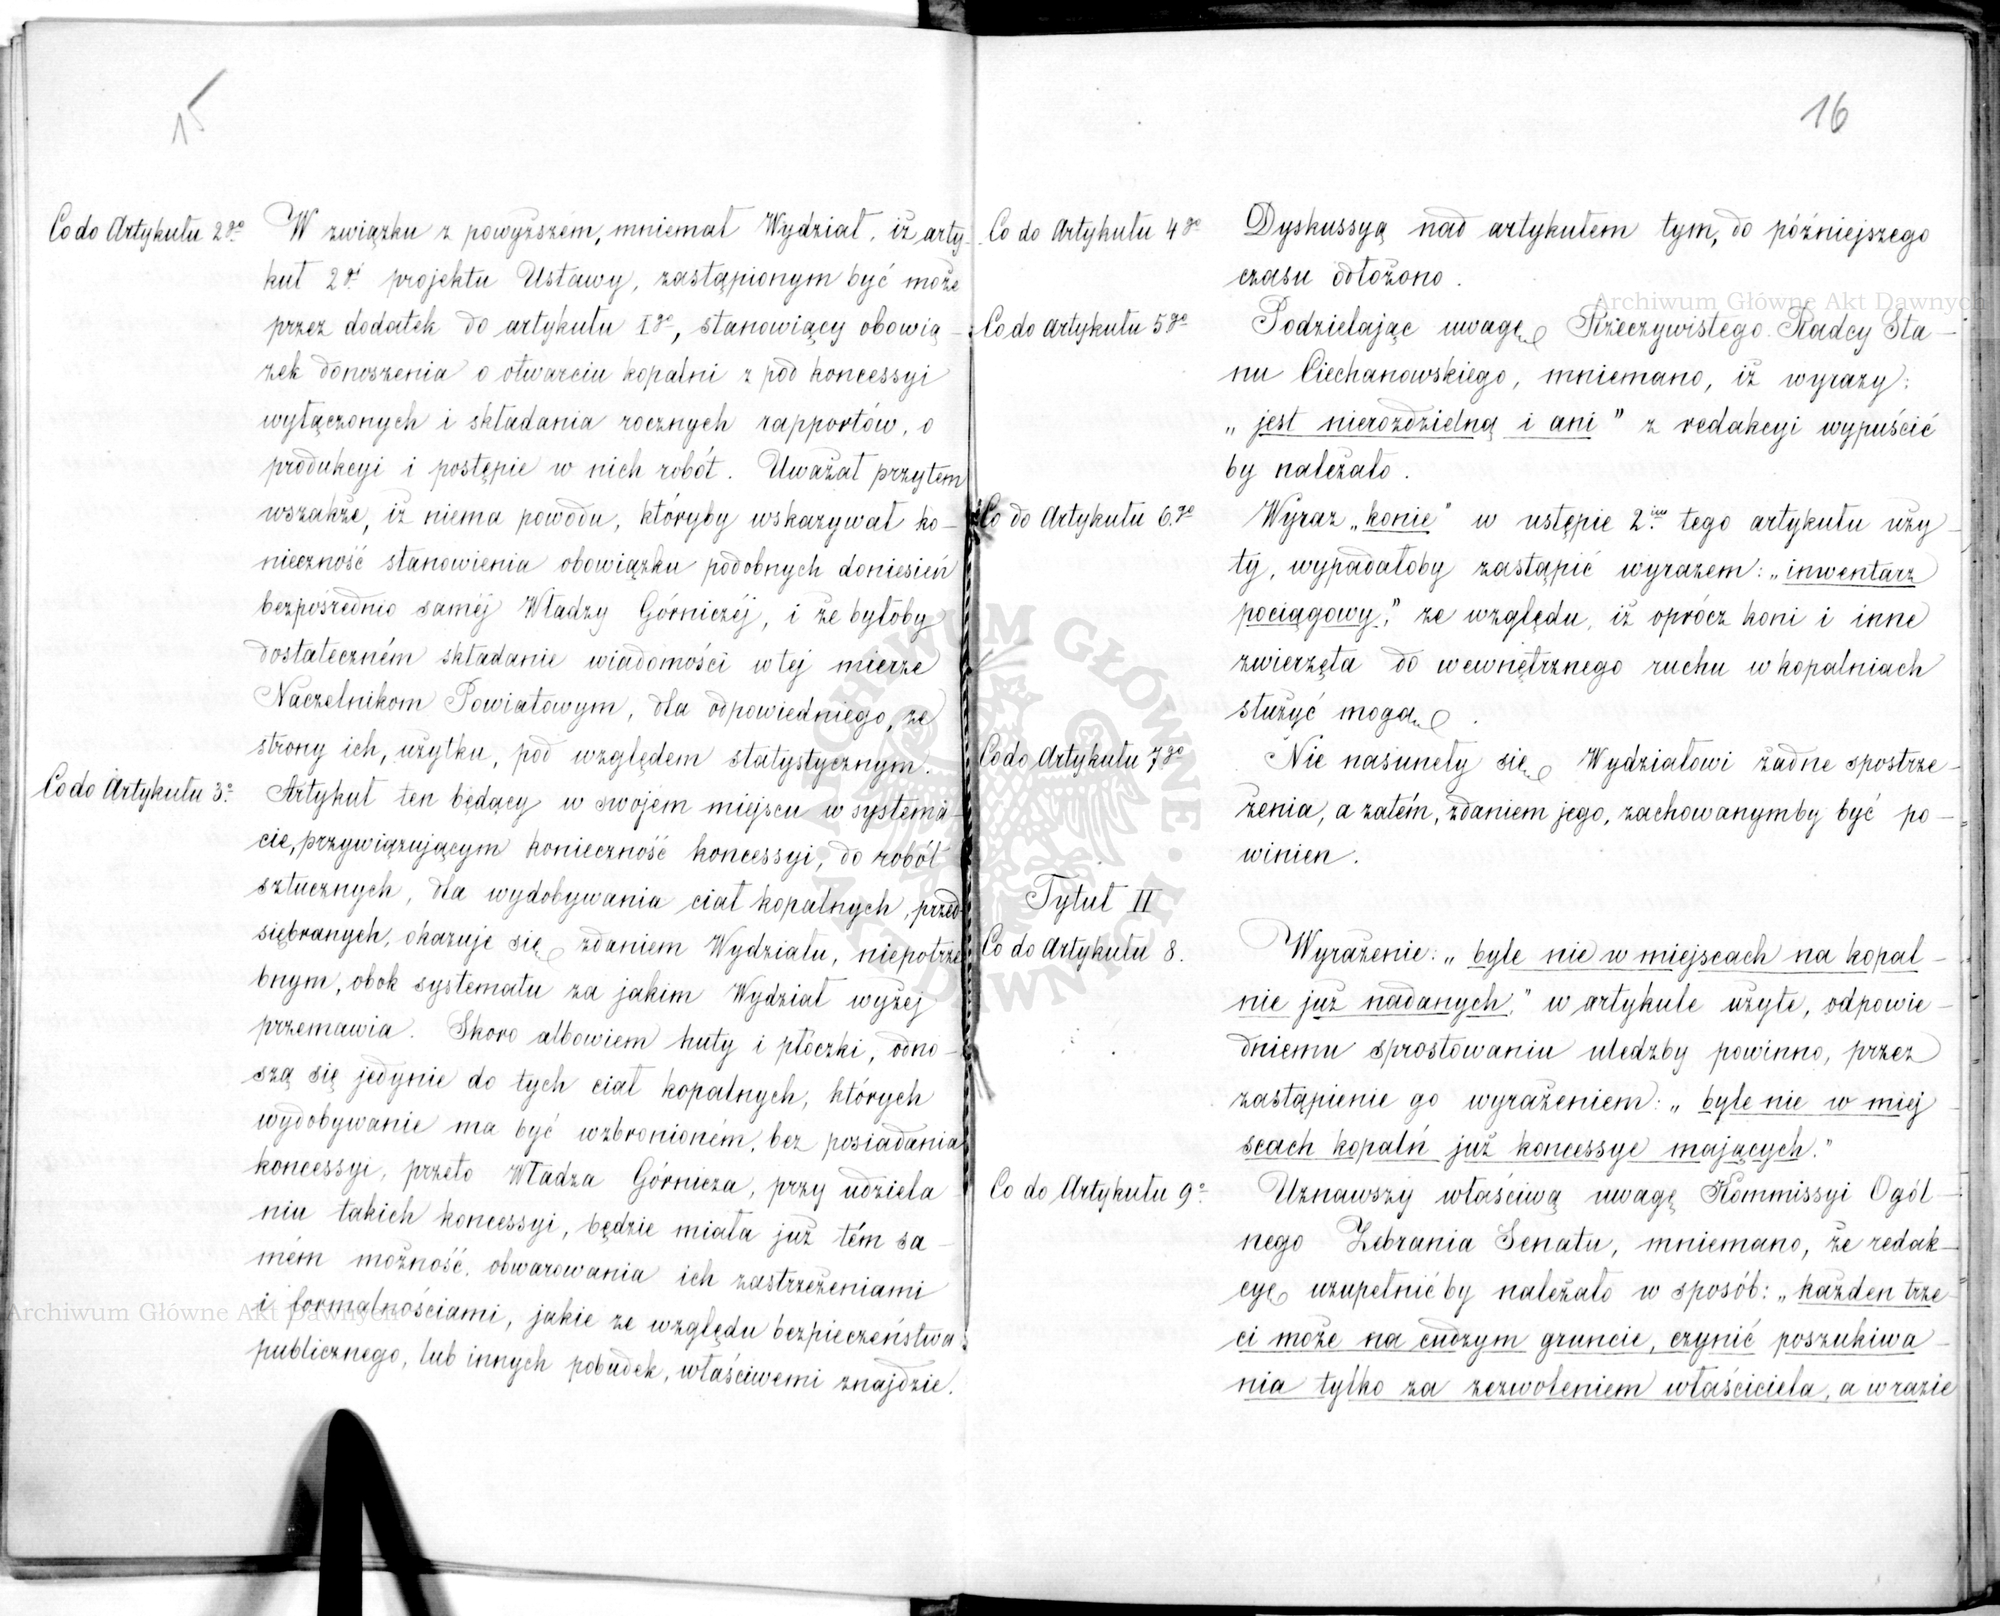 15
Co do Artykułu 2go
W związku z powyższém, mniemał Wydział, iż arty
kuł 2gi projektu Ustawy, zastąpionym być może
przez dodatek do artykułu Igo, stanowiący obowią-
zek donoszenia o otwarciu kopalni z pod koncessyi
wyłączonych i składania rocznych rapportów, o
produkcyi i postępie w nich robót. Uważał przytem
wszakże, iż niema powodu, któryby wskazywał ko-
nieczność stanowienia obowiązku podobnych doniesień
bezpośrednio saméj Władzy Górniczéj, i że byłoby
dostateczném składanie wiadomości w tej mierze
Naczelnikom Powiatowym, dla odpowiedniego, ze
strony ich, użytku, pod względem statystycznym.
Co do Artykułu 3o
Artykuł ten będący w swojém miejscu w systema-
cie, przywiązującym konieczność koncessyi, do robót
sztucznych, dla wydobywania ciał kopalnych, przed-
siębranych, okazuje się zdaniem Wydziału, niepotrze
bnym, obok systematu za jakim Wydział wyżej
przemawia. Skoro albowiem huty i płóczki, odno-
szą się jedynie do tych ciał kopalnych, których
wydobywanie ma być wzbronioném, bez posiadania
koncessyi, przeto Władza Górnicza, przy udziela
niu takich koncessyi, będzie miała już tém sa-
mém możność, obwarowania ich zastrzeżeniami
i formalnościami, jakie ze względu bezpieczeństwa
publicznego, lub innych pobudek, właściwemi znajdzie.
16
Co do Artykułu 4go
Dyskussyą nad artykułem tym, do późniejszego
czasu odłożono.
Co do Artykułu 5go
Podzielając uwagę Rzeczywistego Radcy Sta-
nu Ciechanowskiego, mniemano, iż wyrazy:
„jest nierozdzielną i ani” z redakcyi wypuścić
by należało.
Co do Artykułu 6go
Wyraz „konie” w ustępie 2im tego artykułu uży-
ty, wypadałoby zastąpić wyrazem: „inwentarz
pociągowy,” ze względu, iż oprócz koni i inne
zwierzęta do wewnętrznego ruchu w kopalniach
służyć mogą.
Co do Artykułu 7go
Nie nasunęły się Wydziałowi żadne spostrze-
żenia, a zatém, zdaniem jego, zachowanymby być po-
winien.
Tytuł II
Co do Artykułu 8.
Wyrażenie: „byle nie w miejscach na kopal-
nie już nadanych,” w artykule użyte, odpowie-
dniemu sprostowaniu uledzby powinno, przez
zastąpienie go wyrażeniem: „byle nie w miej
scach kopalń już koncessye mających.”
Co do Artykułu 9o
Uznawszy właściwą uwagę Kommissyi Ogól-
nego Zebrania Senatu, mniemano, że redak-
cyę uzupełnić by należało w sposób: „każden trze
ci może na cudzym gruncie, czynić poszukiwa-
nia tylko za zezwoleniem właściciela, a w razie
Archiwum Główne Akt Dawnych
Archiwum Główne Akt Dawnych
ARCHIWUM GŁÓWNE AKT DAWNYCH